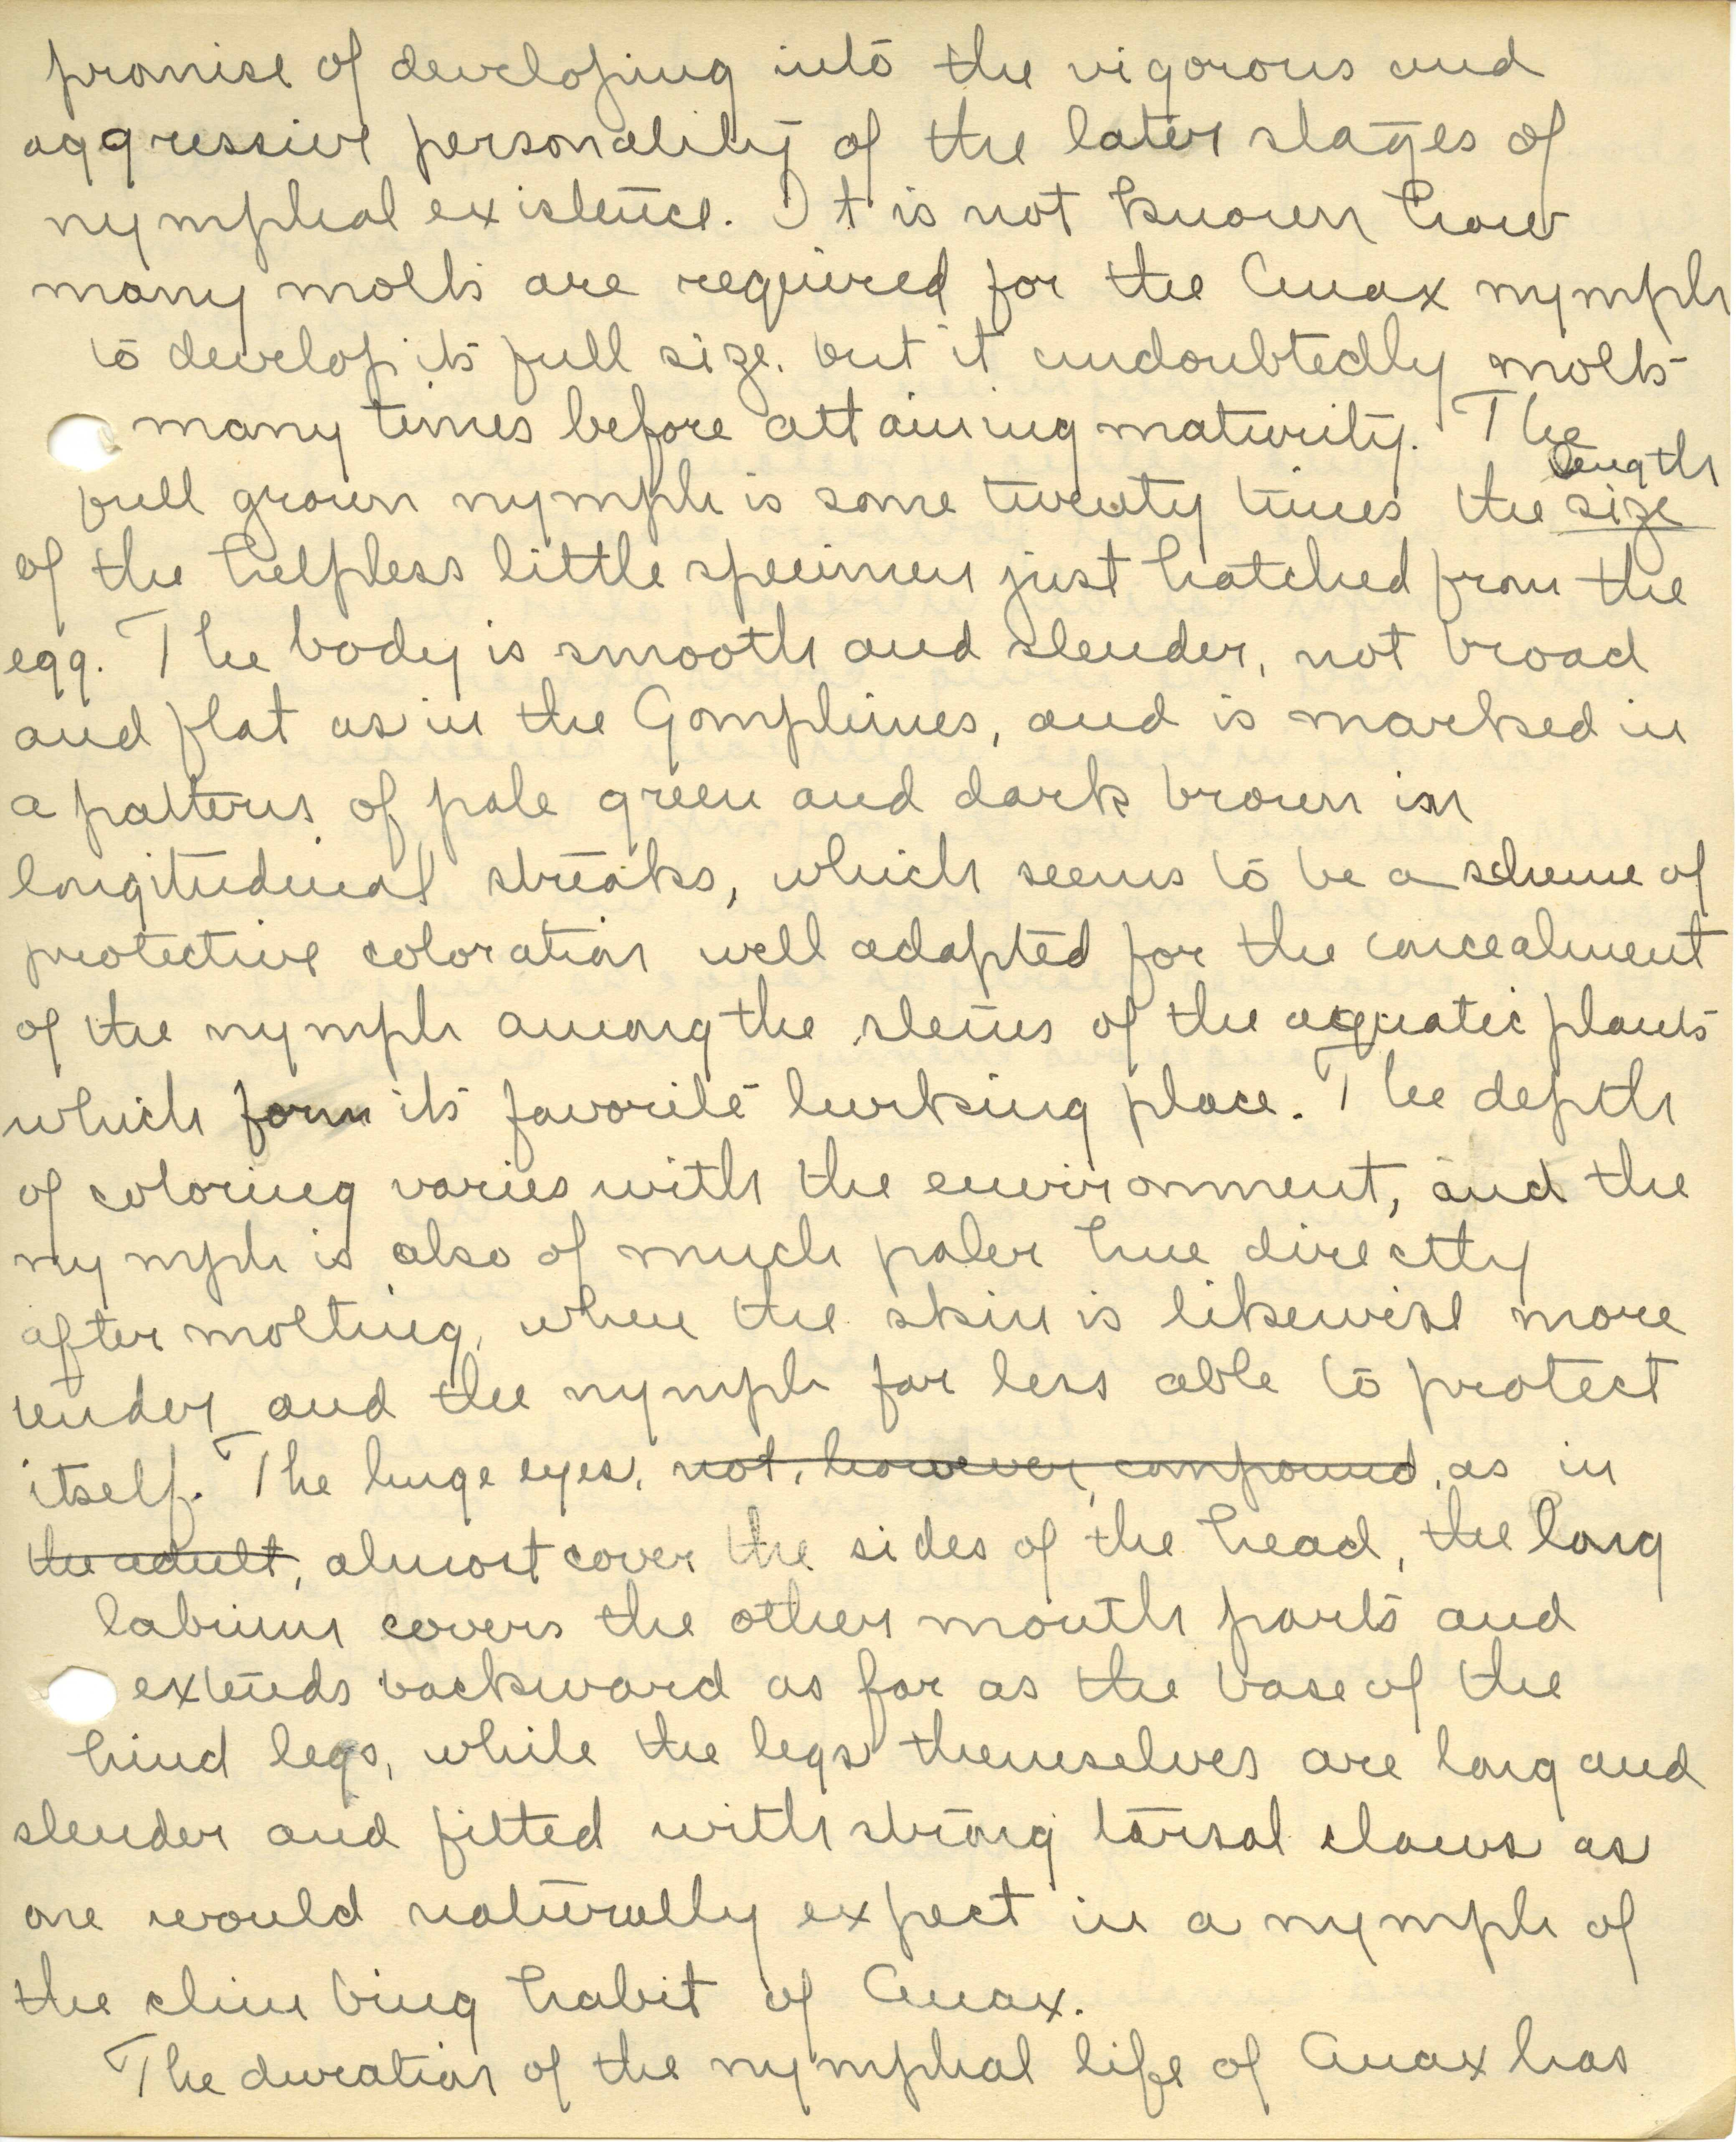 promise of developing into the vigorous and
aggressive personality of the later stages of
nymphal existence. It is not known how
many molts are required for the Anax nymph
to develop its full size, but it undoubtedly molts
many times before attaining maturity. The
length
full grown nymph is some twenty times the size
of the helpless little specimen just hatched from the
egg. The body is smooth and slender, not broad
and flat as in the Gomphines, and is marked in
a patterns of pale green and dark brown in
longitudinal streaks, which seems to be a scheme of
protective coloration well adapted for the concealment
of the nymph among the stems of the aquatic plants
which form its favorite lurking place. The depth
of coloring varies with the environment, and the
nymph is also of much paler hue directly
after molting, when the skin is likewise more
tender and the nymph far less able to protect
itself. The huge eyes, not, however, compound, as in
the adult, almost cover the sides of the head, the long
labium covers the other mouth parts and
extends backward as far as the base of the
hind legs, while the legs themselves are long and
slender and fitted with strong tarsal claws as
one would naturally expect in a nymph of
the climbing habit of Anax.
The duration of the nymphal life of Anax has